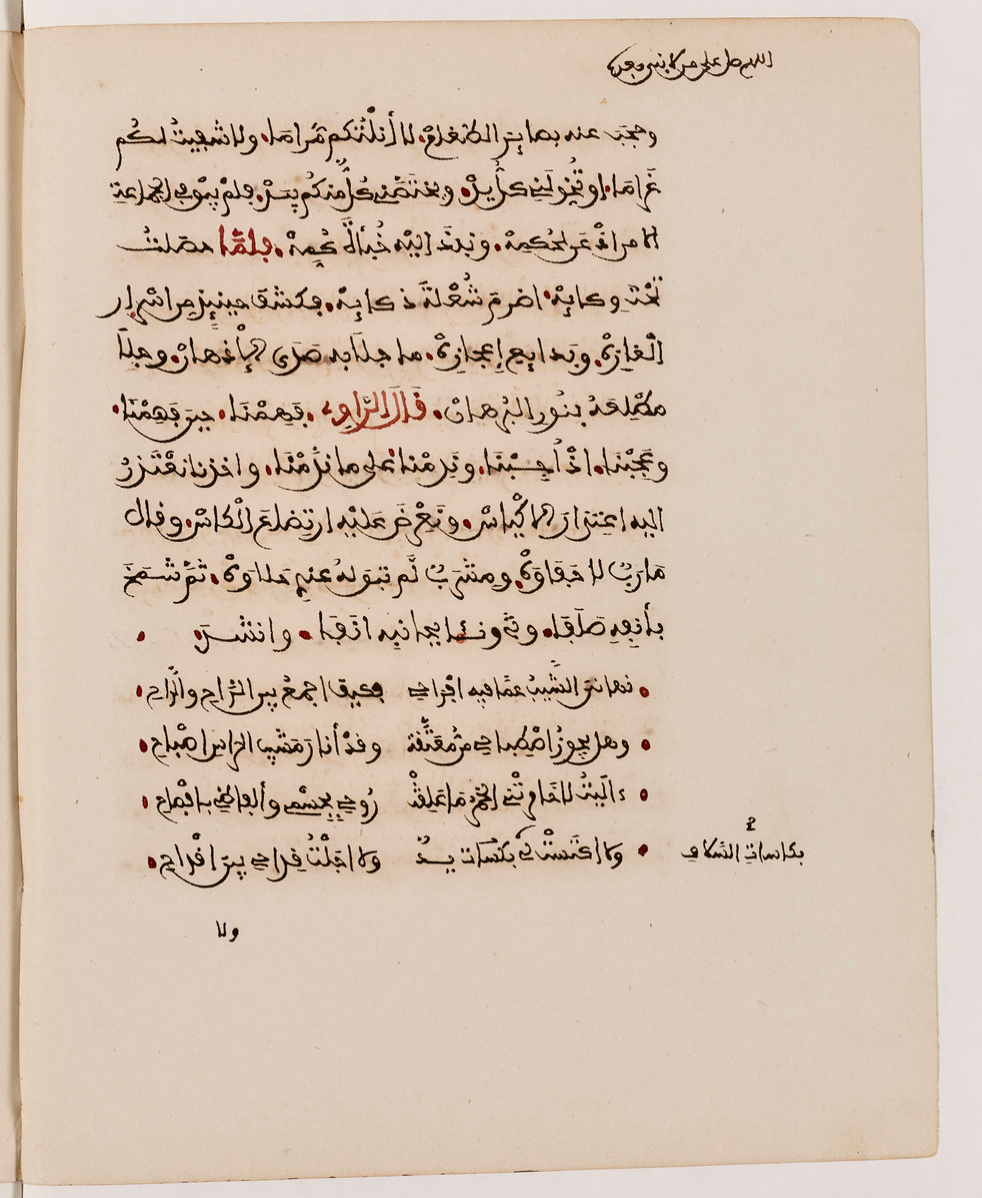 اللهم صل على من لا نبي بعده
وحجب عنه بصاير الطغام لا أنلتكم مراما ولا شفيت لكم
غراما او تخولني كل يد ويختصني كل منكم بيد فلم يبق في الجماعة
الا من اذعن لحكمه ونبذ اليه خبأة كمه فلما حصلت
تحت وكايه اضرم شعلة ذكايه فكشف حينيذ من اسرار
الغازه وبدايع إعجازه ما جلا به صدى الاذهان وجلا
مطلعه بنور البرهان قال الراوي فهمنا حين فهمنا
وعجبنا اذ أجبنا وندمنا على ما ند منا واخذنا نعتذر
اليه اعتذار الاكياس ونعرض عليه ارتضاع الكاس وقال
مارب لا حفاوة ومشرب لم تبق له عندي حلاوة ثم شمخ
بأنفه صلفا بجانبه انفا وانشد
نهاني الشيب عما فيه افراحي فكيف اجمع بين الراح والراح
وهل يجوز اصطباحي من معتقة وقد أنار مشيب الراس اصباحي
ءاليت لا خامرتني الخمر ما علقت روحي بجسمي وألفاظي بافصاحي
ولا اكتست لي بكسات يد ولا اجلت قداحي بين اقداح
بكاسات السلاف
ولا